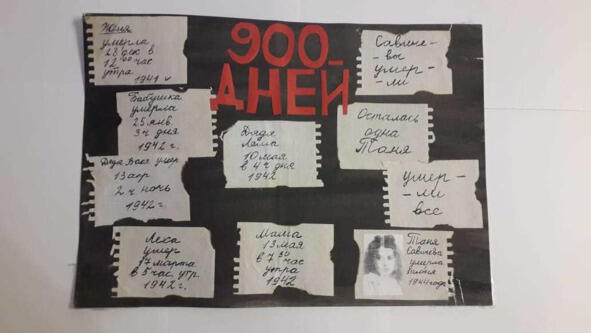 Женя
умерла
28 дек в
12 00 час
утра
1941 г
900
ДНЕЙ
Савиче-
-вы
умер-
-ли
Бабушка
умерла
25 янв.
3 ч дня
1942 г.
Дядя
Лёша
10 мая
в 4 ч дня
1942
Осталась
одна
Таня
Дядя Вася умер
13 апр
2 ч ночь
1942 г.
умер-
-ли
все
Лека
умер
17 марта
в 5 час. утр.
1942 г.
Мама
13 мая
в 7 30 час
утра
1942
Таня
Савичева
умерла
1944 года